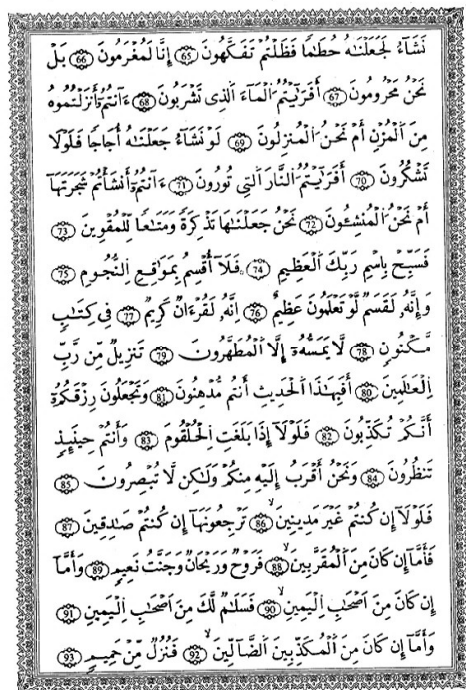 نَشَآءُ لَجَعَلْنَٰهُ حُطَٰمًا فَظَلْتُمْ تَفَكَّهُونَ ﴿65﴾ إِنَّا لَمُغْرَمُونَ ﴿66﴾ بَلْ
نَحْنُ مَحْرُومُونَ ﴿67﴾ أَفَرَءَيْتُمُ الْمَآءَ الَّذِى تَشْرَبُونَ ﴿68﴾ ءَأَنتُمْ أَنزَلْتُمُوهُ
مِنَ الْمُزْنِ أَمْ نَحْنُ الْمُنزِلُونَ ﴿69﴾ لَوْ نَشَآءُ جَعَلْنَٰهُ أُجَاجًا فَلَوْلَا
تَشْكُرُونَ ﴿70﴾ أَفَرَءَيْتُمُ النَّارَ الَّتِى تُورُونَ ﴿71﴾ ءَأَنتُمْ أَنشَأْتُمْ شَجَرَتَهَآ
أَمْ نَحْنُ الْمُنشِـُٔونَ ﴿72﴾ نَحْنُ جَعَلْنَٰهَا تَذْكِرَةً وَمَتَٰعًا لِّلْمُقْوِينَ ﴿73﴾
فَسَبِّحْ بِاسْمِ رَبِّكَ الْعَظِيمِ ﴿74﴾ فَلَآ أُقْسِمُ بِمَوَٰقِعِ النُّجُومِ ﴿75﴾
وَإِنَّهُۥ لَقَسَمٌ لَّوْ تَعْلَمُونَ عَظِيمٌ ﴿76﴾ إِنَّهُۥ لَقُرْءَانٌ كَرِيمٌ ﴿77﴾ فِى كِتَٰبٍ
مَّكْنُونٍ ﴿78﴾ لَّا يَمَسُّهُۥٓ إِلَّا الْمُطَهَّرُونَ ﴿79﴾ تَنزِيلٌ مِّن رَّبِّ
الْعَٰلَمِينَ ﴿80﴾ أَفَبِهَٰذَا الْحَدِيثِ أَنتُم مُّدْهِنُونَ ﴿81﴾ وَتَجْعَلُونَ رِزْقَكُمْ
أَنَّكُمْ تُكَذِّبُونَ ﴿82﴾ فَلَوْلَآ إِذَا بَلَغَتِ الْحُلْقُومَ ﴿83﴾ وَأَنتُمْ حِينَئِذٍ
تَنظُرُونَ ﴿84﴾ وَنَحْنُ أَقْرَبُ إِلَيْهِ مِنكُمْ وَلَٰكِن لَّا تُبْصِرُونَ ﴿85﴾
فَلَوْلَآ إِن كُنتُمْ غَيْرَ مَدِينِينَ ﴿86﴾ تَرْجِعُونَهَآ إِن كُنتُمْ صَٰدِقِينَ ﴿87﴾
فَأَمَّآ إِن كَانَ مِنَ الْمُقَرَّبِينَ ﴿88﴾ فَرَوْحٌ وَرَيْحَانٌ وَجَنَّتُ نَعِيمٍ ﴿89﴾ وَأَمَّآ
إِن كَانَ مِنْ أَصْحَٰبِ الْيَمِينِ ﴿90﴾ فَسَلَٰمٌ لَّكَ مِنْ أَصْحَٰبِ الْيَمِينِ ﴿91﴾
وَأَمَّآ إِن كَانَ مِنَ الْمُكَذِّبِينَ الضَّآلِّينَ ﴿92﴾ فَنُزُلٌ مِّنْ حَمِيمٍ ﴿93﴾